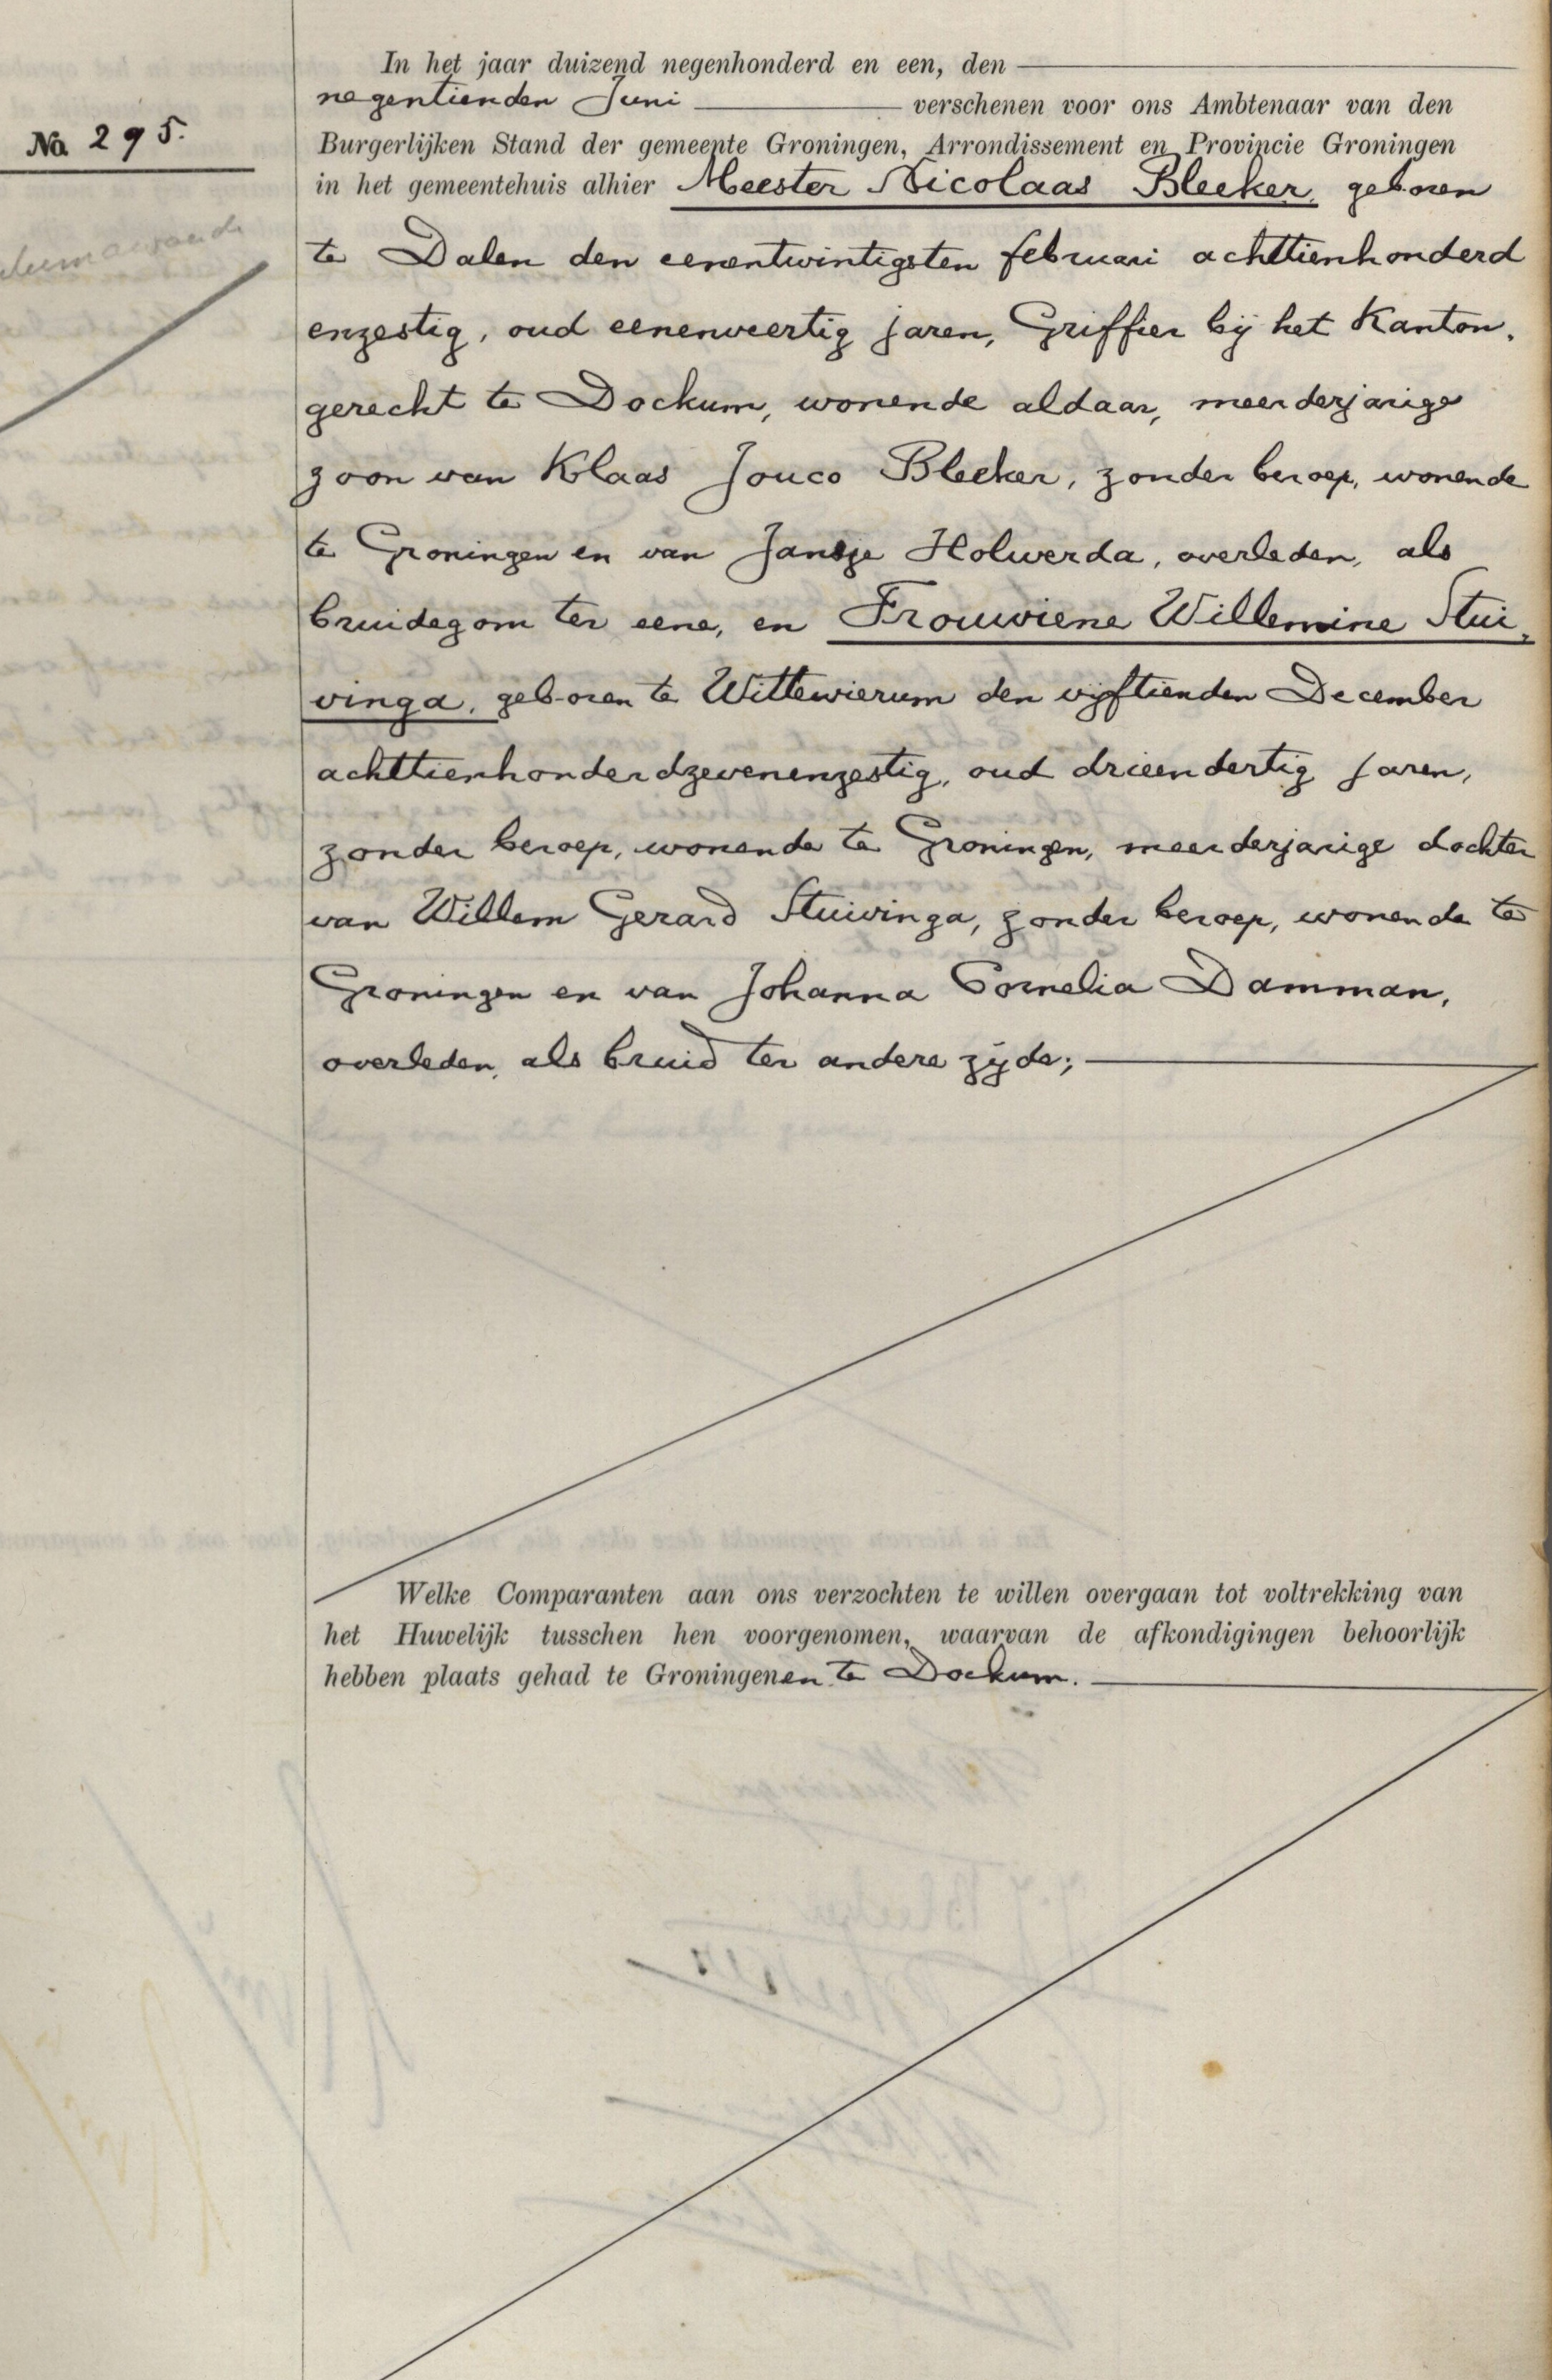 In het jaar duizend negenhonderd en een, den
negentienden Juni verschenen voor ons Ambtenaar van den
No. 295.
Burgerlijken Stand der gemeente Groningen, Arrondissement en Provincie Groningen
in het gemeentehuis alhier Meester Nicolaas Bleeker, geboren
te Dalen den eenentwintigsten februari achttienhonderd
enzestig, oud eenenveertig jaren, Griffier bij het Kanton,
gerecht te Dockum, wonende aldaar, meerderjarige
zoon van Klaas Jouco Bleeker, zonder beroep, wonende
te Groningen en van Jansje Holwerda, overleden, als
bruidegom ter eene, en Frouwiene Willemine Stui,
vinga, geboren te Wittewierum den vijftienden December
achttienhonderdzevenenzestig, oud drieendertig jaren,
zonder beroep, wonende te Groningen, meerderjarige dochter
van Willem Gerard Stuivinga, zonder beroep, wonende te
Groningen en van Johanna Cornelia Damman,
overleden, als bruid ter andere zijde;
Welke Comparanten aan ons verzochten te willen overgaan tot voltrekking van
het Huwelijk tusschen hen voorgenomen, waarvan de afkondigingen behoorlijk
hebben plaats gehad te Groningen en te Dockum.